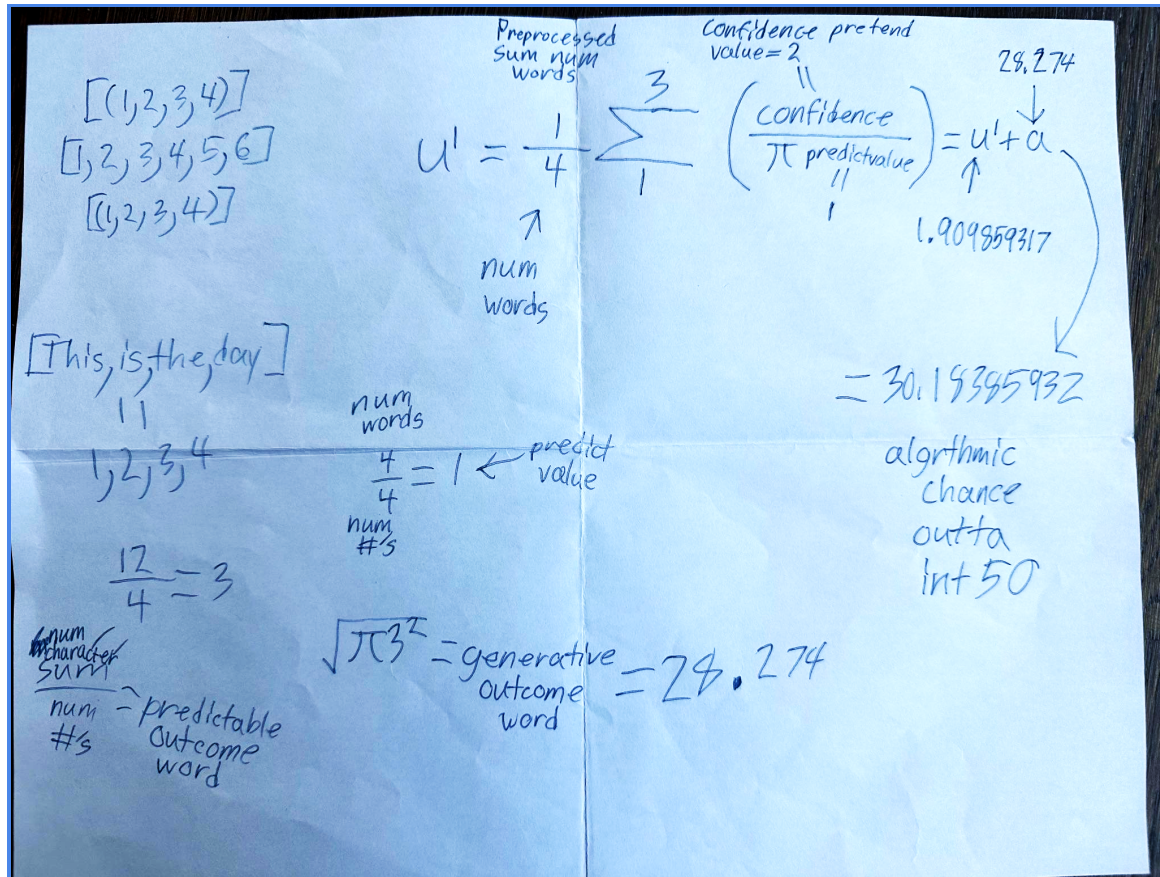 [(1,2,3,4)]
[1,2,3,4,5,6]
[(1,2,3,4)]
Preprocessed
sum num
words
confidence pretend
value=2
28.274
u' = 1/4 3 Σ 1 (confidence / π predictvalue) = u'+a
1
1.909859317
num
words
= 30.18385932
algrthmic
chance
outta
int 50
[This, is, the, day]
1,2,3,4
num
words
4/4 = 1
predict
value
num
#'s
12/4 = 3
num
character
sum
num
#'s
= predictable
outcome
word
√π3² = generative
outcome
word
= 28.274